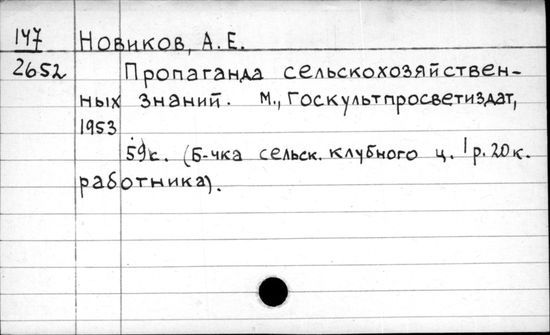 147 Новиков, А. Е.
2652 Пропаганда сельскохозяйствен-
ных знаний. М., Госкультпросветиздат,
1953
59с. (Б-чка сельск. клубного ц. 1р. 20к.
работника).